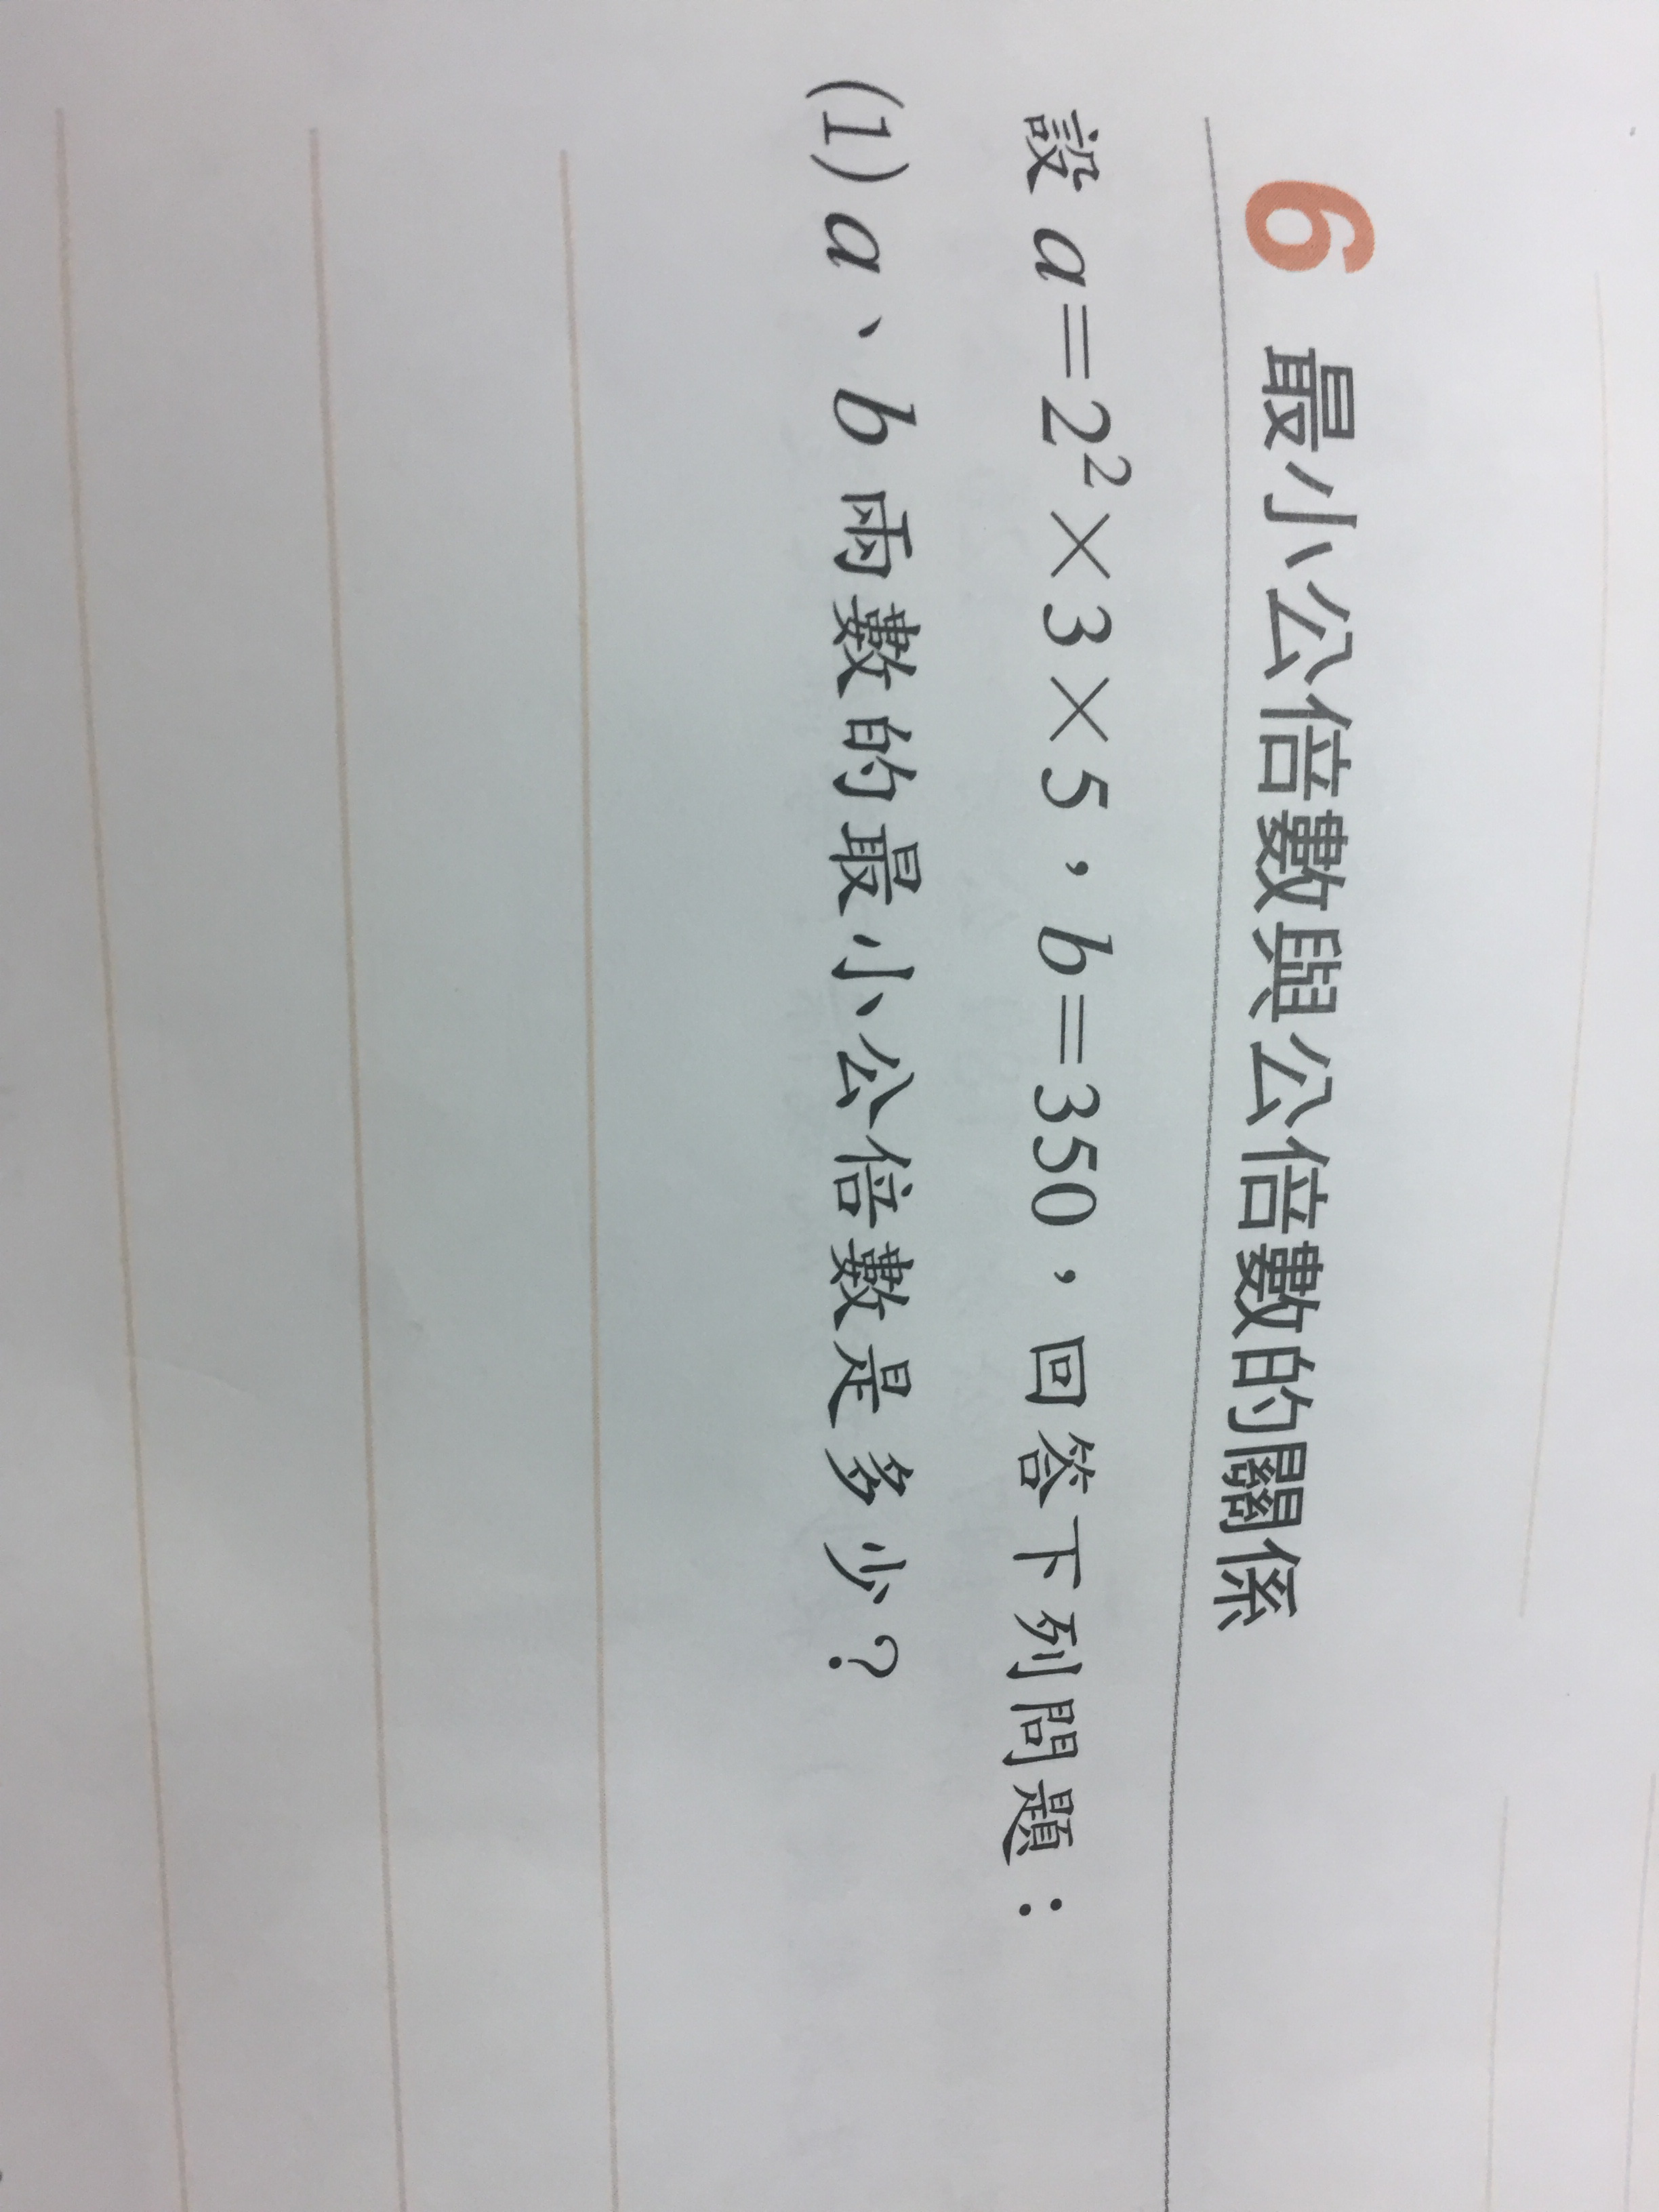 6 最小公倍數與公倍數的關係
設 a=2²×3×5，b=350，回答下列問題：
(1) a、b 兩數的最小公倍數是多少？